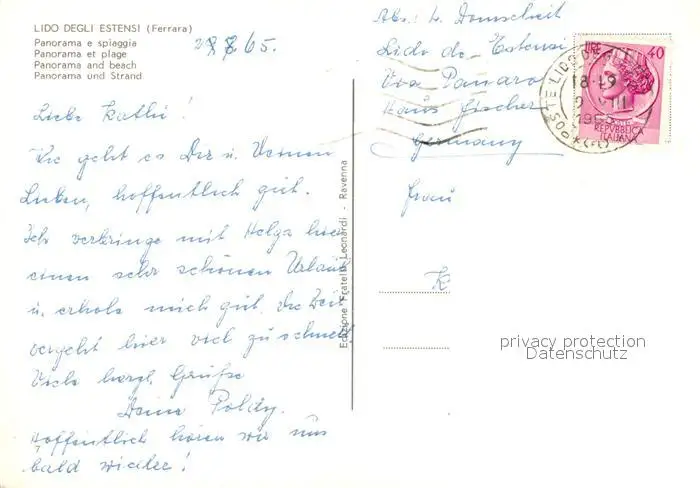 LIDO DEGLI ESTENSI (Ferrara)
Panorama e spiaggia
Panorama et plage
Panorama and beach
Panorama und Strand
8. 65.
Liebe Kathi!
Wie geht es Dir u. Deinen
Lieben, hoffentlich gut.
Ich verbringe mit Helga hier
einen sehr schönen Urlaub
u. erhole mich gut. die Zeit
vergeht hier viel zu schnell
Viele herzl. Grüße
Deine Poldy.
Hoffentlich hören wir uns
bald wieder!
Edizione Fratelli Leonardi - Ravenna
Abs: L. Domscheit
Lido de Estensi
Via Panaro
Haus Fischer
Germany
Frau
K
LIRE 40
POSTE
REPVBBLICA
ITALIANA
18-19
1965
privacy protection
Datenschutz